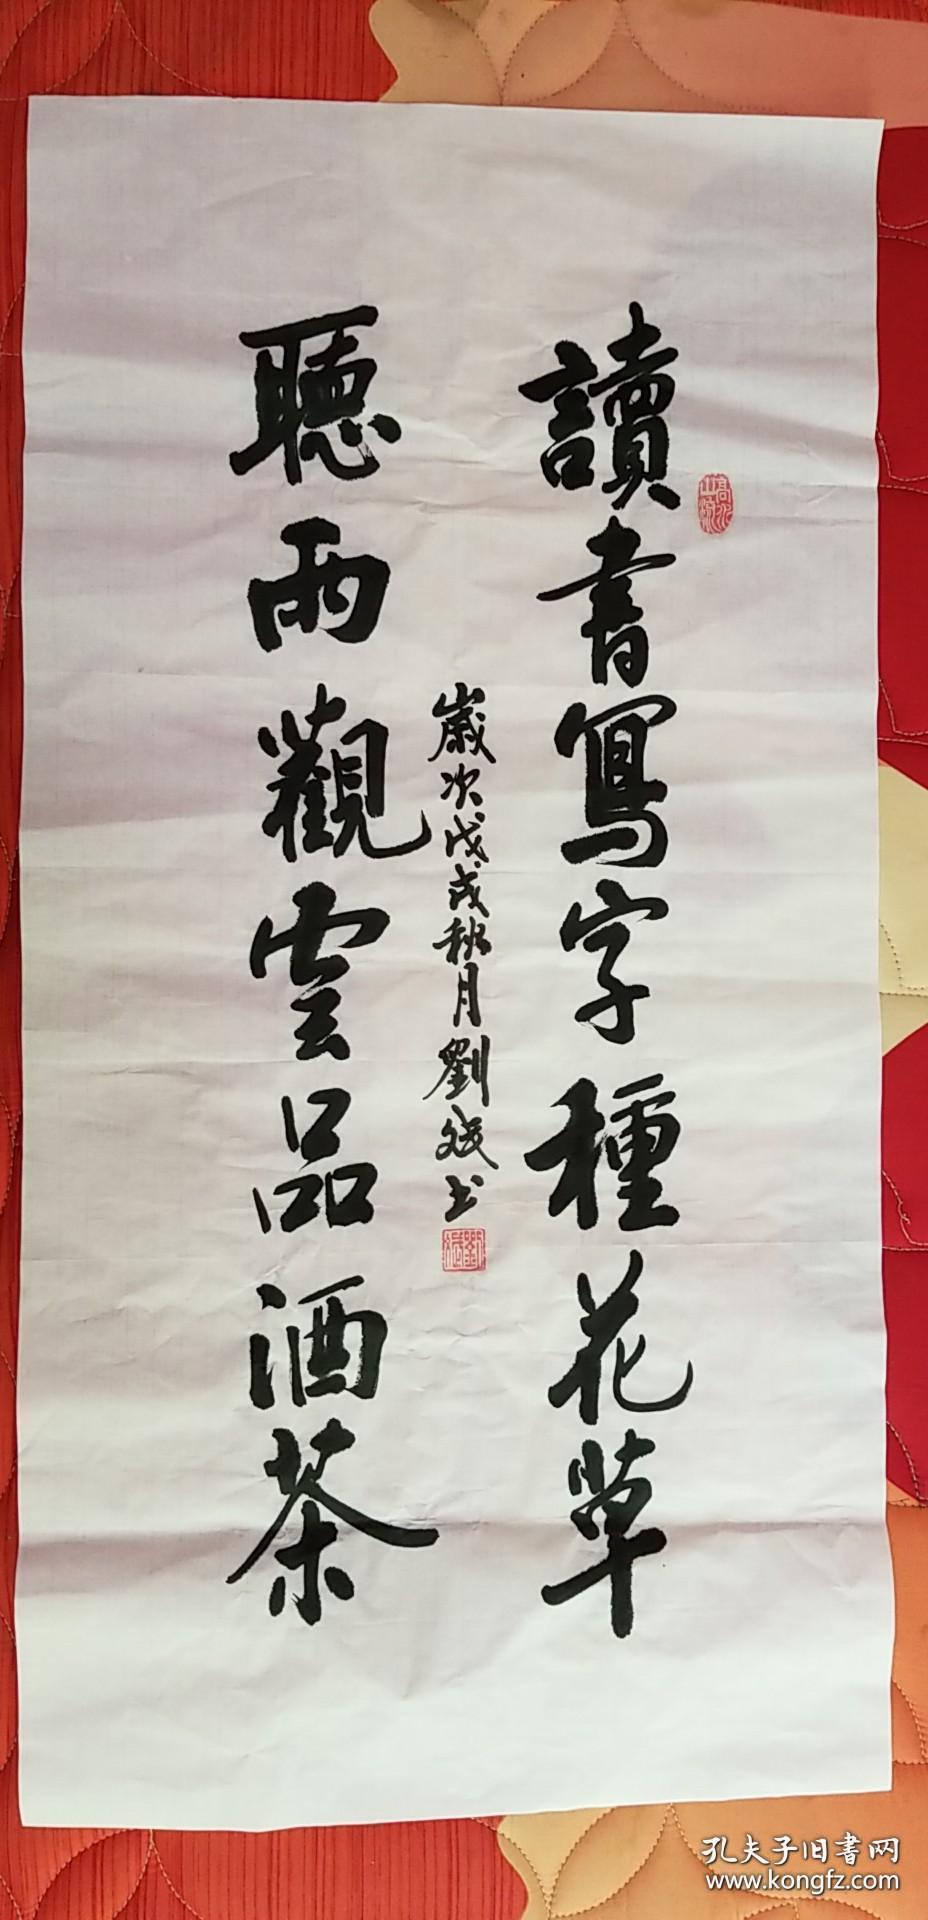 讀書寫字種花草
聽雨觀雲品酒茶
歲次戊戌秋月劉斌书
高山流水
劉斌
孔夫子旧书网
www.kongfz.com